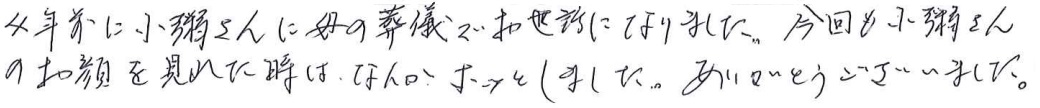 4年前に小粥さんに母の葬儀でお世話になりました。今回も小粥さん
のお顔を見れた時は、なんかホッとしました。ありがとうございました。